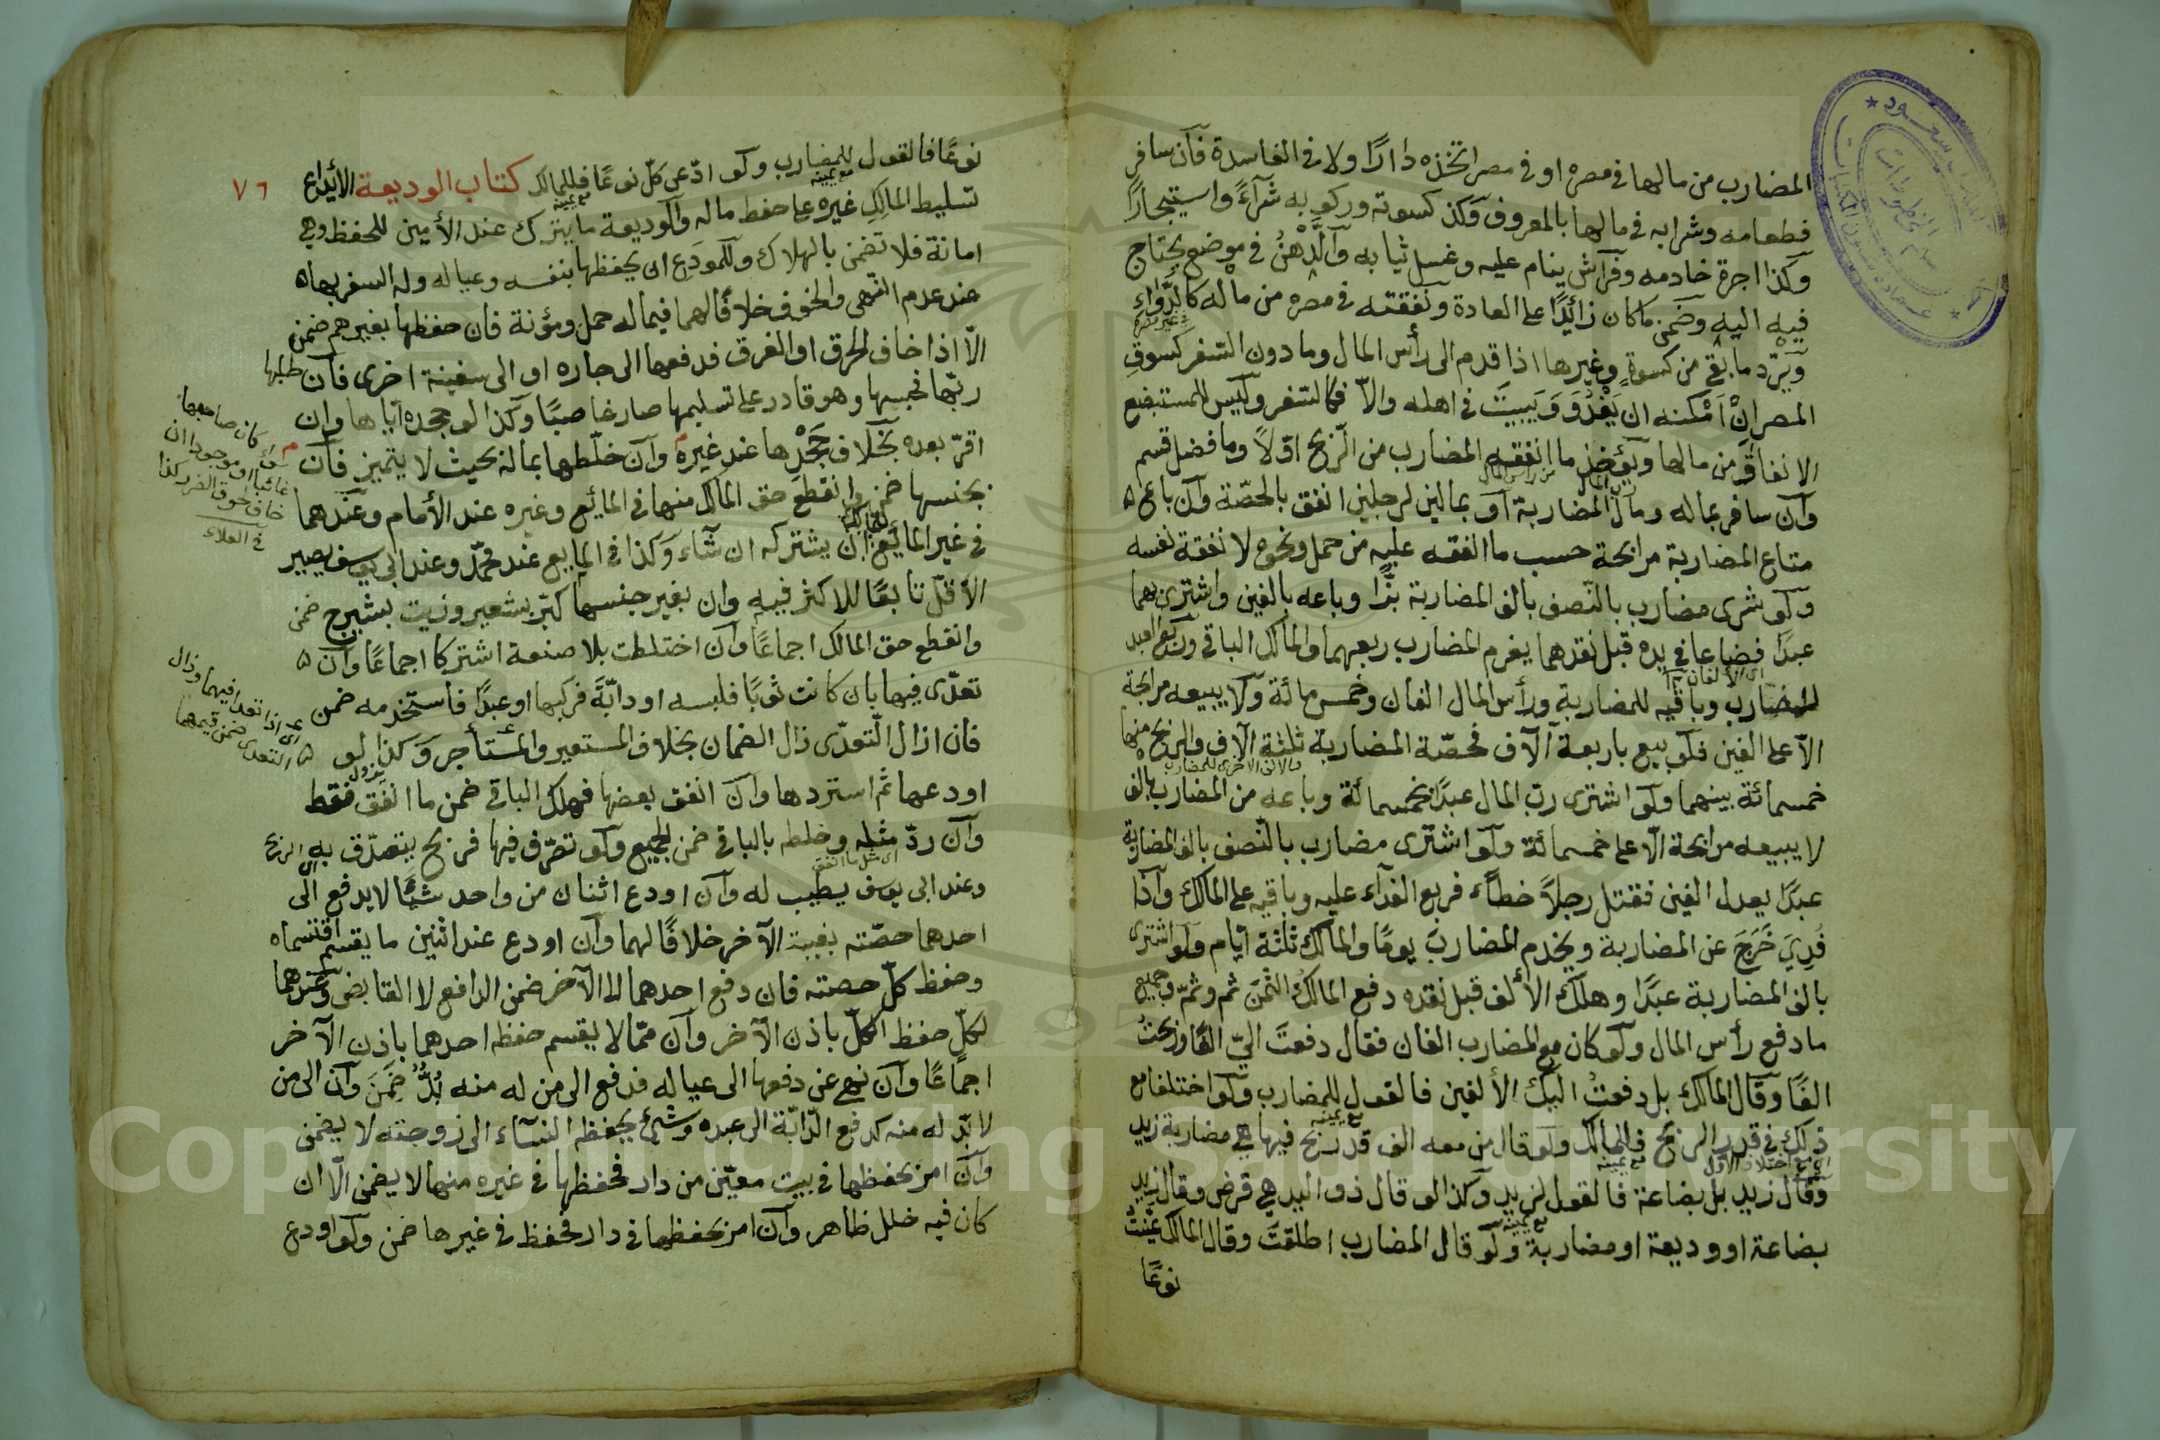 المضارب من مالها في مصره او في مصر اتخذه دارًا ولا في الفاسدة فآن سافر
فطعامه وشرابه في مالها بالمعروف وكذ كسوته وركوبه شرآءً واستيجارًا
وكذا اجرة خادمه وفرآش ينام عليه وغسل ثيابه وآلدّهنُ في موضع يحتاج
فيه اليه وضمن ما كان زائدًا على العادة ونفقته في مصره من ماله كالدّواء
ويردّ ما بقي من كسوةٍ وغيرها اذا قدم الى رأس المال وما دون السّفر كسوق
المصر انْ اَمْكنه ان يَغْدُوَ وَيَبيتَ في اهله والاّ فكالسّفر وليس للمستبضع
الانفاق من مالها ويؤخذ ما انفقه المضارب من الرّبح اوّلاً وما فضل قسم
وآن سافر بماله ومال المضاربة آو بمالين لرجلين انفق بالحصّة وآن باع
متاع المضاربة مرابحة حسب ما انفقه عليه من حمل ونحوه لا نفقة نفسه
ولو شرى مضارب بالنّصف بالف المضاربة بزًّا وباعه بالفين واشترى بهما
عبدًا فضاعا في يده قبل نقدهما يغرم المضارب ربعهما والمالك الباقي وربع العبد
للمضارب وباقيه للمضاربة ورأس المال الفان وخمس مائة ولا يبيعه مرابحة
الاّ على الفين فلو بيع باربعة آلآف فحصّة المضاربة ثلثة آلاف والربح منها
خمسمائة بينهما ولو اشترى ربّ المال عبدًا بخمسمائة وباعه من المضارب بالف
لا يبيعه مرابحة الاّ على خمسمائة ولو اشترى مضارب بالنّصف بالف المضاربة
عبدًا يعدل الفين فقتل رجلاً خطأً فربع الفدآء عليه وباقيه على المالك وآذا
فُدِيَ خَرَجَ عن المضاربة ويخدم المضاربَ يومًا والمالكَ ثلثة ايّام ولو اشترى
بالف المضاربة عبدًا وهلك الألف قبل نقده دفع المالكُ الثمنَ ثم وثمّ وجميع
ما دفع رأس المال ولو كان مع المضارب الفان فقال دفعتَ اليّ الفًا وربحتُ
الفًا وقال المالك بل دفعتُ اليك الألفين فالقول للمضارب ولو اختلفا مع
ذلك في قدر الربح فللمالك ولو قال من معه الف قد ربح فيها هي مضاربة زيد
وقال زيد بل بضاعة فالقول لزيد وكذا لو قال ذو اليد هي قرض وقال زيد
بضاعة او وديعة او مضاربة ولو قال المضارب اطلقتَ وقال المالك عيّنتُ
نوعًا
نوعًا فالقول للمضارب ولو ادّعى كلّ نوعًا فللمالك كتاب الوديعة الأيداع
٧٦
تسليط المالك غيره على حفظ ماله والوديعة ما يترك عند الأمين للحفظ وهي
امانة فلا تضمن بالهلاك وللمودَع ان يحفظها بنفسه وعياله وله السفر بها
عند عدم النّهي والخوف خلافًا لهما فيما له حمل ومؤنة فان حفظها بغيرهم ضمن
الاّ اذا خاف الحرق او الغرق فدفعها الى جاره او الى سفينة اخرى فآن طلبها
ربّها فحبسها وهو قادر على تسليمها صار غاصبًا وكذا لو جحده ايّاها وان
اقرّ بعده بخلاف جَحْدِها عند غيره وآن خلّطها بماله بحيث لا يتميز فآن
بجنسها ضمن وانقطع حق المالك منها في المائع وغيره عند الأمام وعندهما
في غير المائع له ان يشتركه ان شآء وكذا في المايع عند محمّد وعند ابي يوسف يصير
الأقلّ تابعًا للاكثر فيه وان بغير جنسها كبرّ بشعير وزيت بشيرج ضمن
وانقطع حق المالك اجماعًا وآن اختلطت بلا صنعه اشتركا اجماعًا وآن
تعدّى فيها بان كانت ثوبًا فلبسه او دابّةً فركبها او عبدًا فاستخدمه ضمن
فان ازال التّعدّى زال الضمان بخلاف المستعير والمستأجر وكذا لو
اودعها ثم استردها وآن انفق بعضها فهلك الباقي ضمن ما انفق فقط
وآن ردّ مثله وخلطه بالباقي ضمن الجميع ولو تصرّف فيها فربح يتصدّق به
وعند ابي يوسف يطيب له وآن اودع اثنان من واحد شيئًا لا يدفع الى
احدهما حصّته بغيبة الآخر خلافًا لهما وآن اودع عند اثنين ما يقسم اقتسماه
وحفظ كلّ حصته فان دفع احدهما الى الآخر ضمن الدافع لا القابض وعندهما
لكلّ حفظ الكلّ باذن الآخر وآن ممّا لا يقسم حفظه احدهما باذن الآخر
اجماعًا وآن نهي عن دفعها الى عياله فدفع الى من له منه بُدٌّ ضَمِنَ وآن الى من
لا بدّ له منه كدفع الدّابّة الى عبده وشئ يحفظه النسآء الى زوجته لا يضمن
وآن امر بحفظها في بيت معيّن من دار فحفظها في غيره منها لا يضمن الاّ ان
كان فيه خلل ظاهر وآن امر بحفظها في دار فحفظ في غيرها ضمن ولو اودع
Copyright © King Saud University